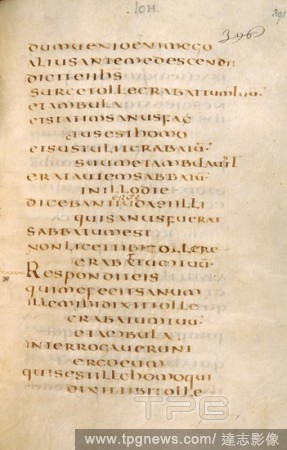 IOH.
396
391
dum uenio enim ego
alius ante me descendit
dicit ei ihs
surge tolle grabattum tuum
et ambula
et statim sanus fac
tus est homo
et sustulit grabattu
suum et ambulauit
erat autem sabbatu
in illo die
dicebant iudaei illi
qui sanus fuerat
sabbatum est
non licet tibi tollere
grabattum tuu
Respondit eis
qui me fecit sanum
ille mihi dixit tolle
grabattum tuu
et ambula
interrogauerunt
ergo eum
quis est ille homo qui
dixit tibi tolle
TPG
www.tpgnews.com / 達志影像